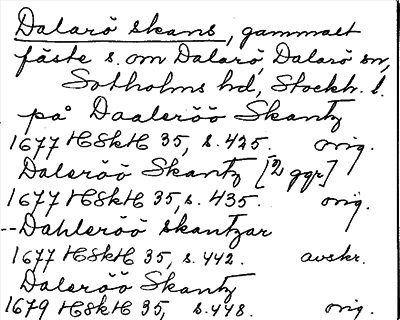 Dalarö skans, gammalt
fäste s. om Dalarö, Dalarö sn,
Sotholms hd, Stockh. l.
på Daaleröö Skantz
1677 HSkH 35, s. 425. orig.
Daleröö Skantz [2 ggr]
1677 HSkH 35, s. 435. orig.
--Dahleröö skantzar
1677 HSkH 35, s. 442. avskr.
Daleröö Skantz
1679 HSkH 35, s. 448. orig.